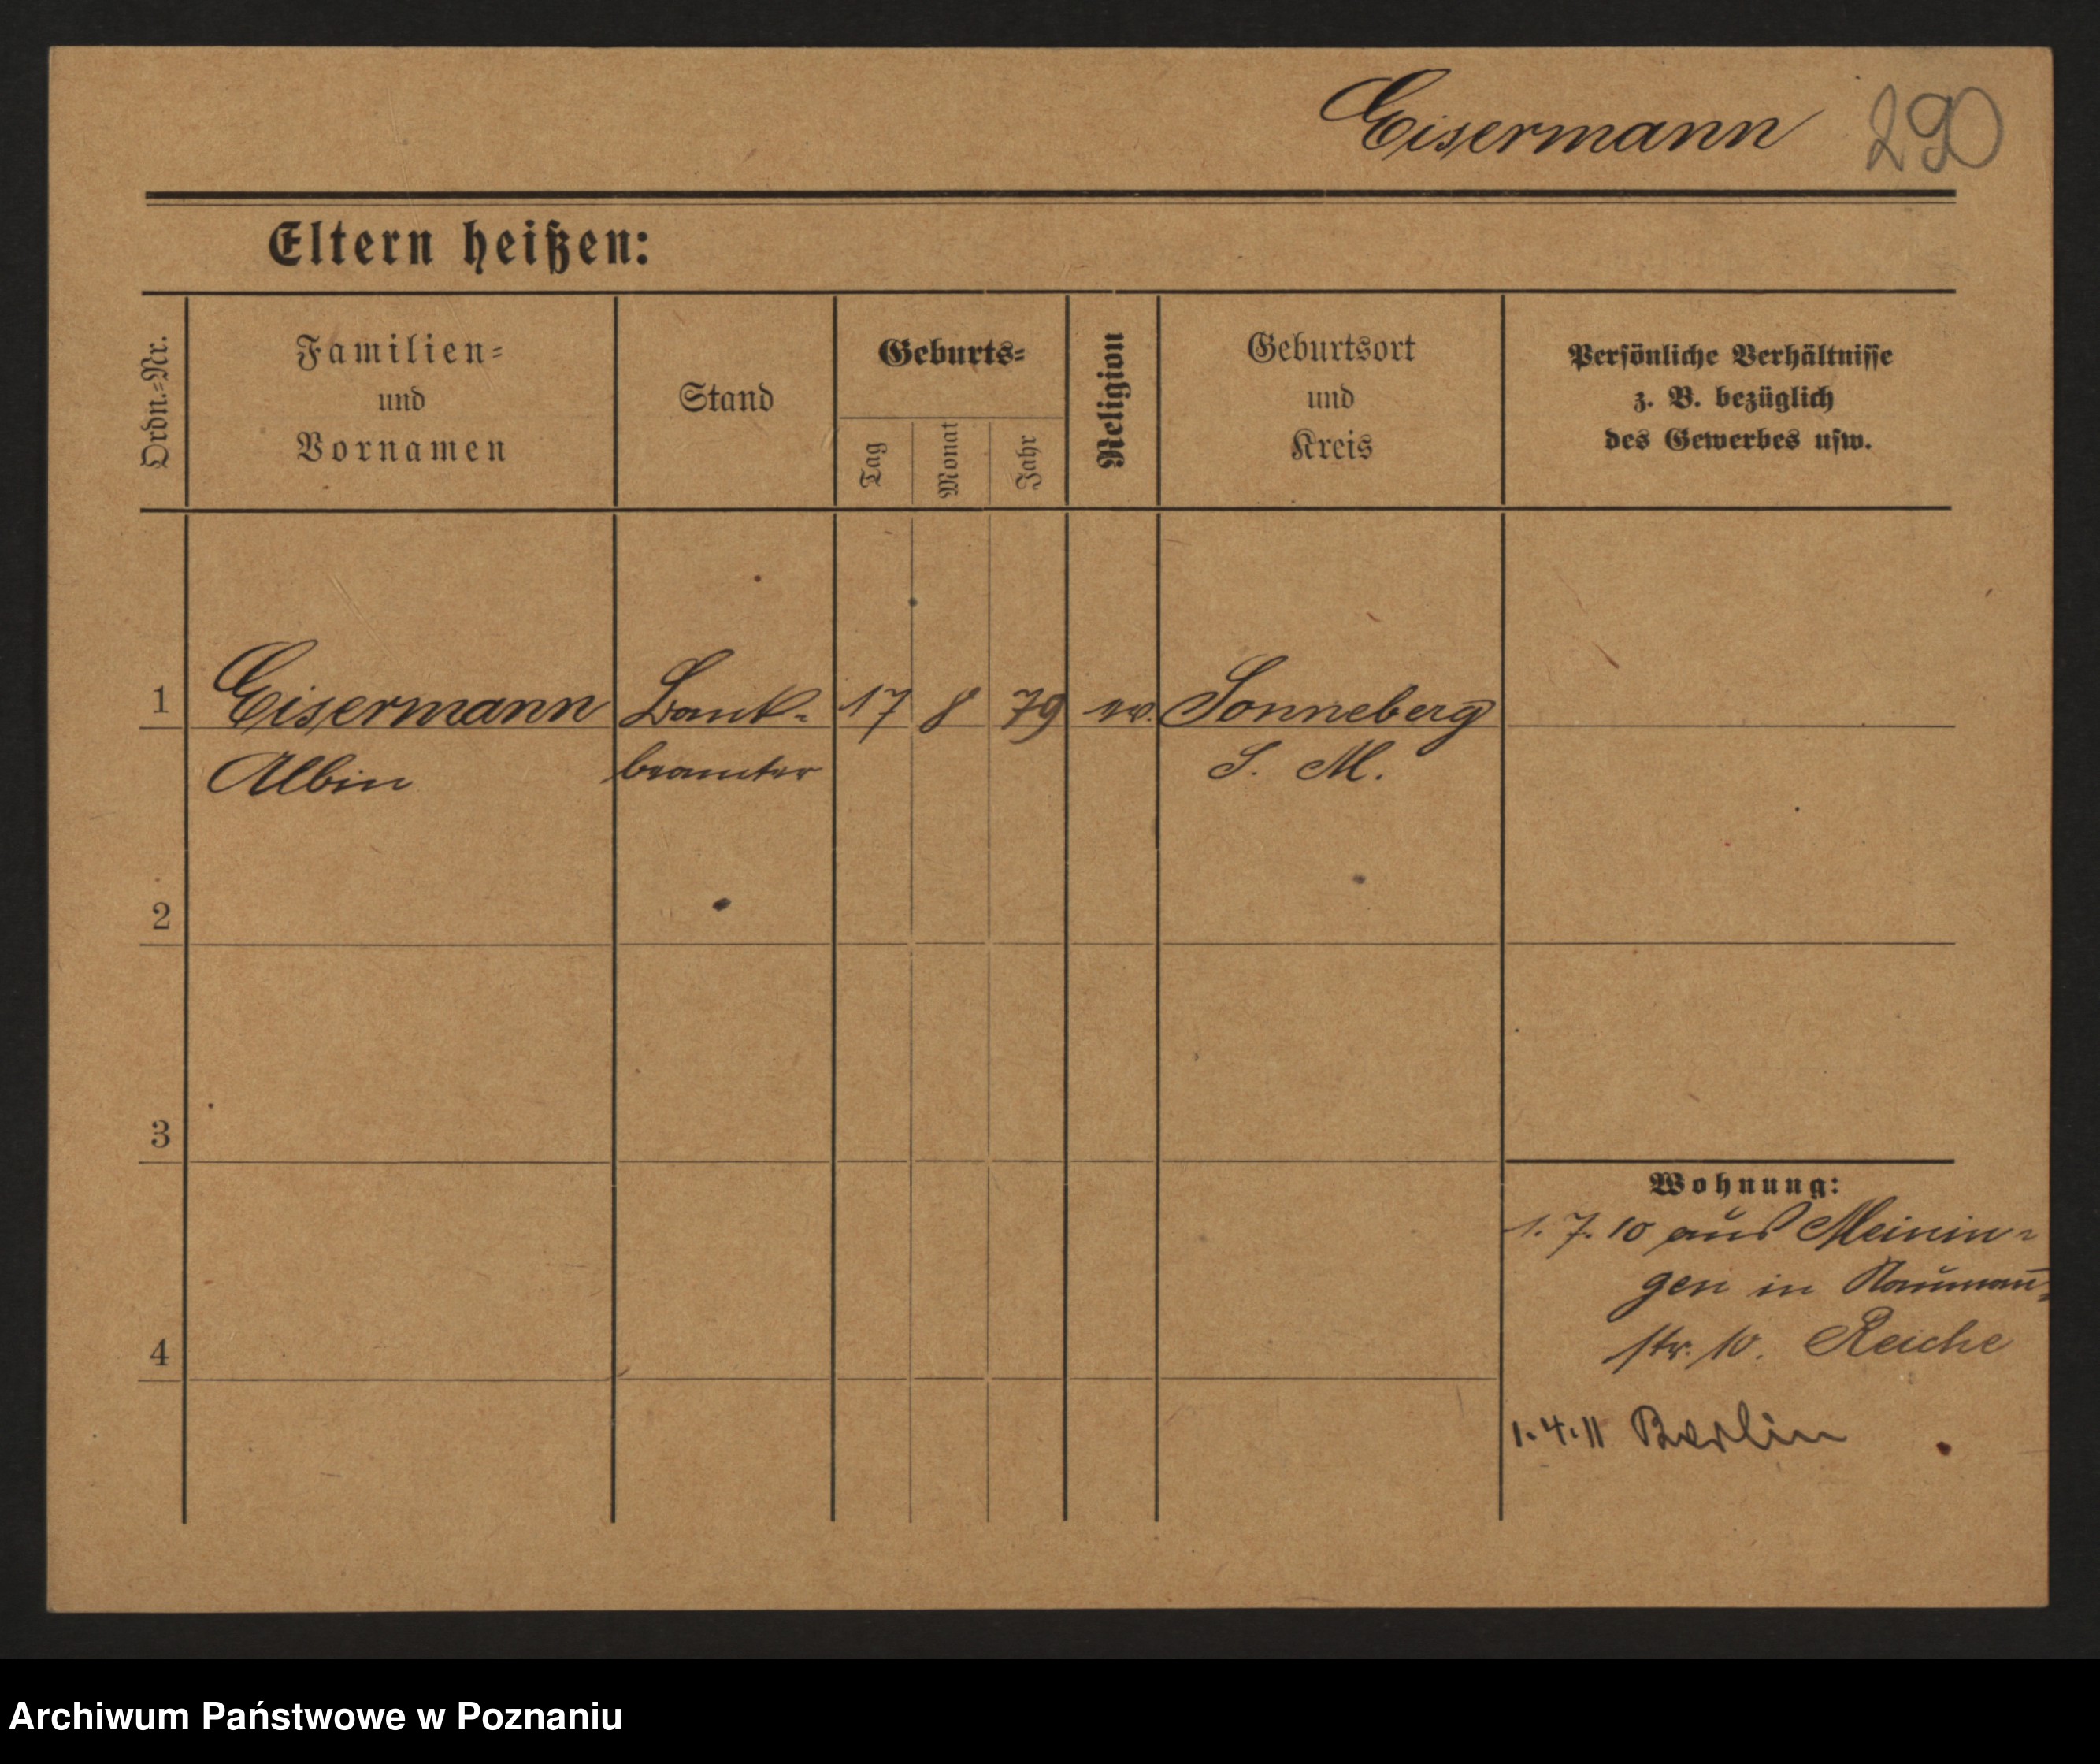 Eisermann 290
Eltern heißen:
Ordn.-Nr.
Familien-
und
Vornamen
Stand
Geburts-
Tag
Monat
Jahr
Religion
Geburtsort
und
Kreis
Persönliche Verhältnisse
z. B. bezüglich
des Gewerbes usw.
1 Eisermann Bank- 17 8 79 ev. Sonneberg
Albin beamter S. M.
2
3
4
Wohnung:
1. 7. 10 aus Meinin-
gen in Naumann-
str. 10. Reiche
1.4.11 Berlin
Archiwum Państwowe w Poznaniu